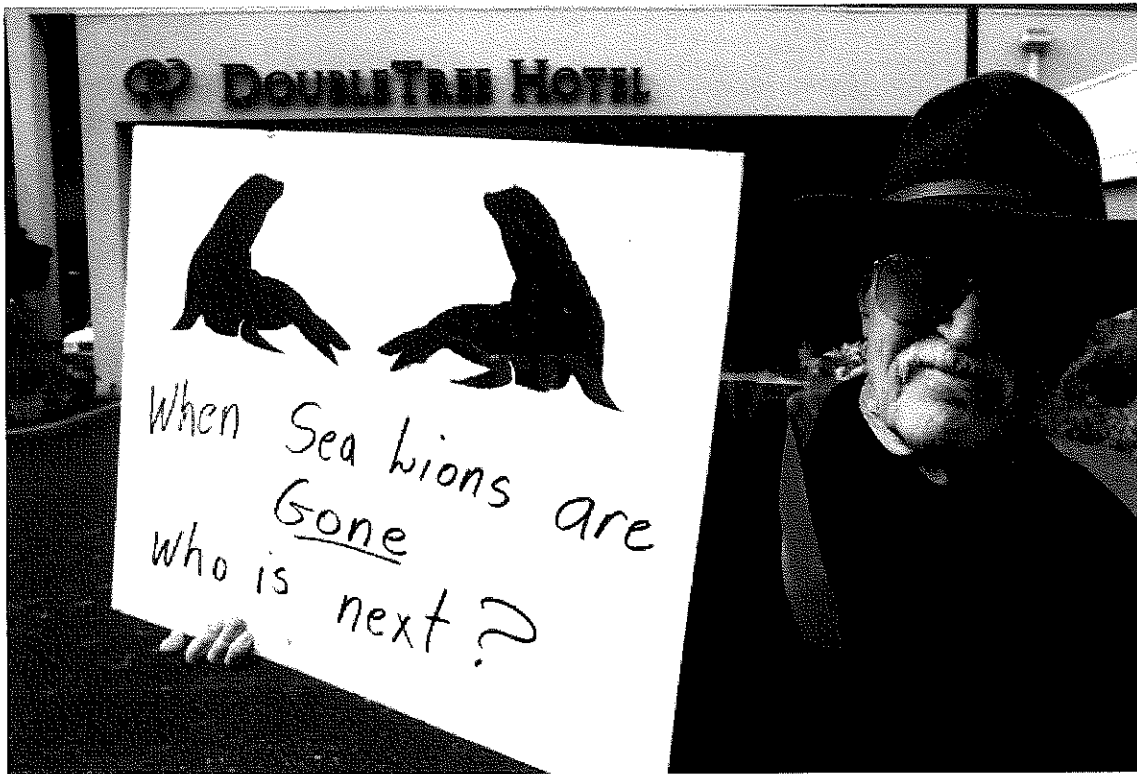 DOUBLETREE HOTEL
When Sea Lions are
Gone
who is next?